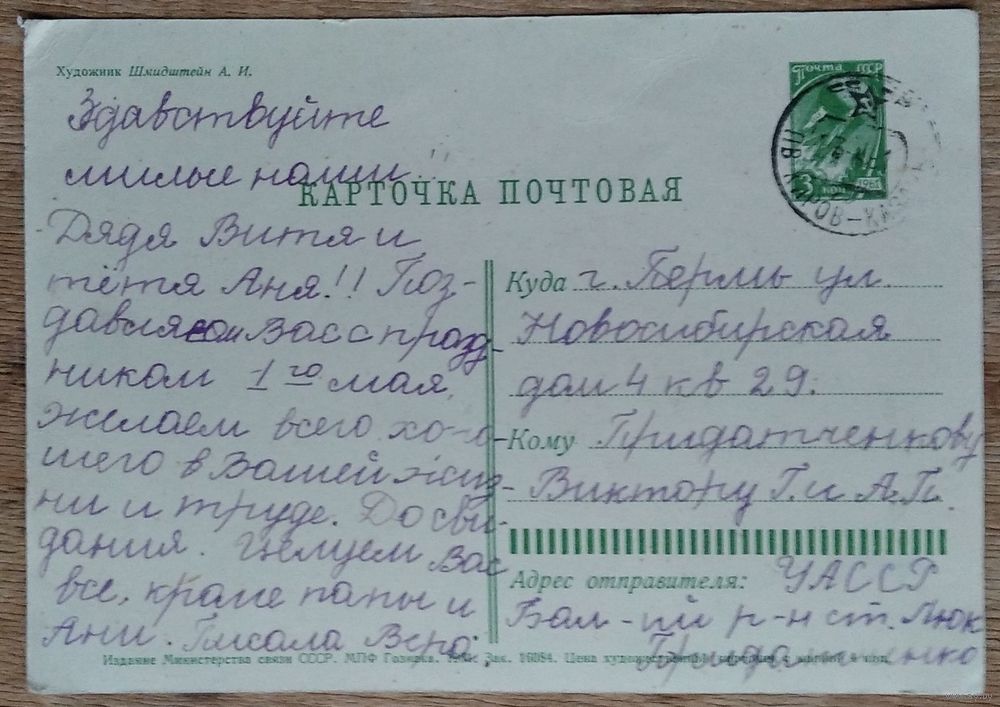 Художник Шмидштейн А. И.
Почта СССР
3 коп 1961
КАРТОЧКА ПОЧТОВАЯ
Здавствуйте
милые наши!!
Дядя Витя и
тётя Аня!! Поз-
давляем Вас с празд-
ником 1го мая,
желаем всего хоро-
шего в Вашей жиз-
ни и труде. До сви-
дания. Целуем Вас
все, кроме папы и
Ани. Писала Вера.
Куда г. Пермь ул.
Новосибирская
дом 4 кв 29.
Кому Придатченкову
Виктору Г. и А.П.
Адрес отправителя: УАССР
Бал-ий р-н ст. Люк
Придатченко
Издание Министерства связи СССР. МПФ Гознака. Зак. 16084. Цена